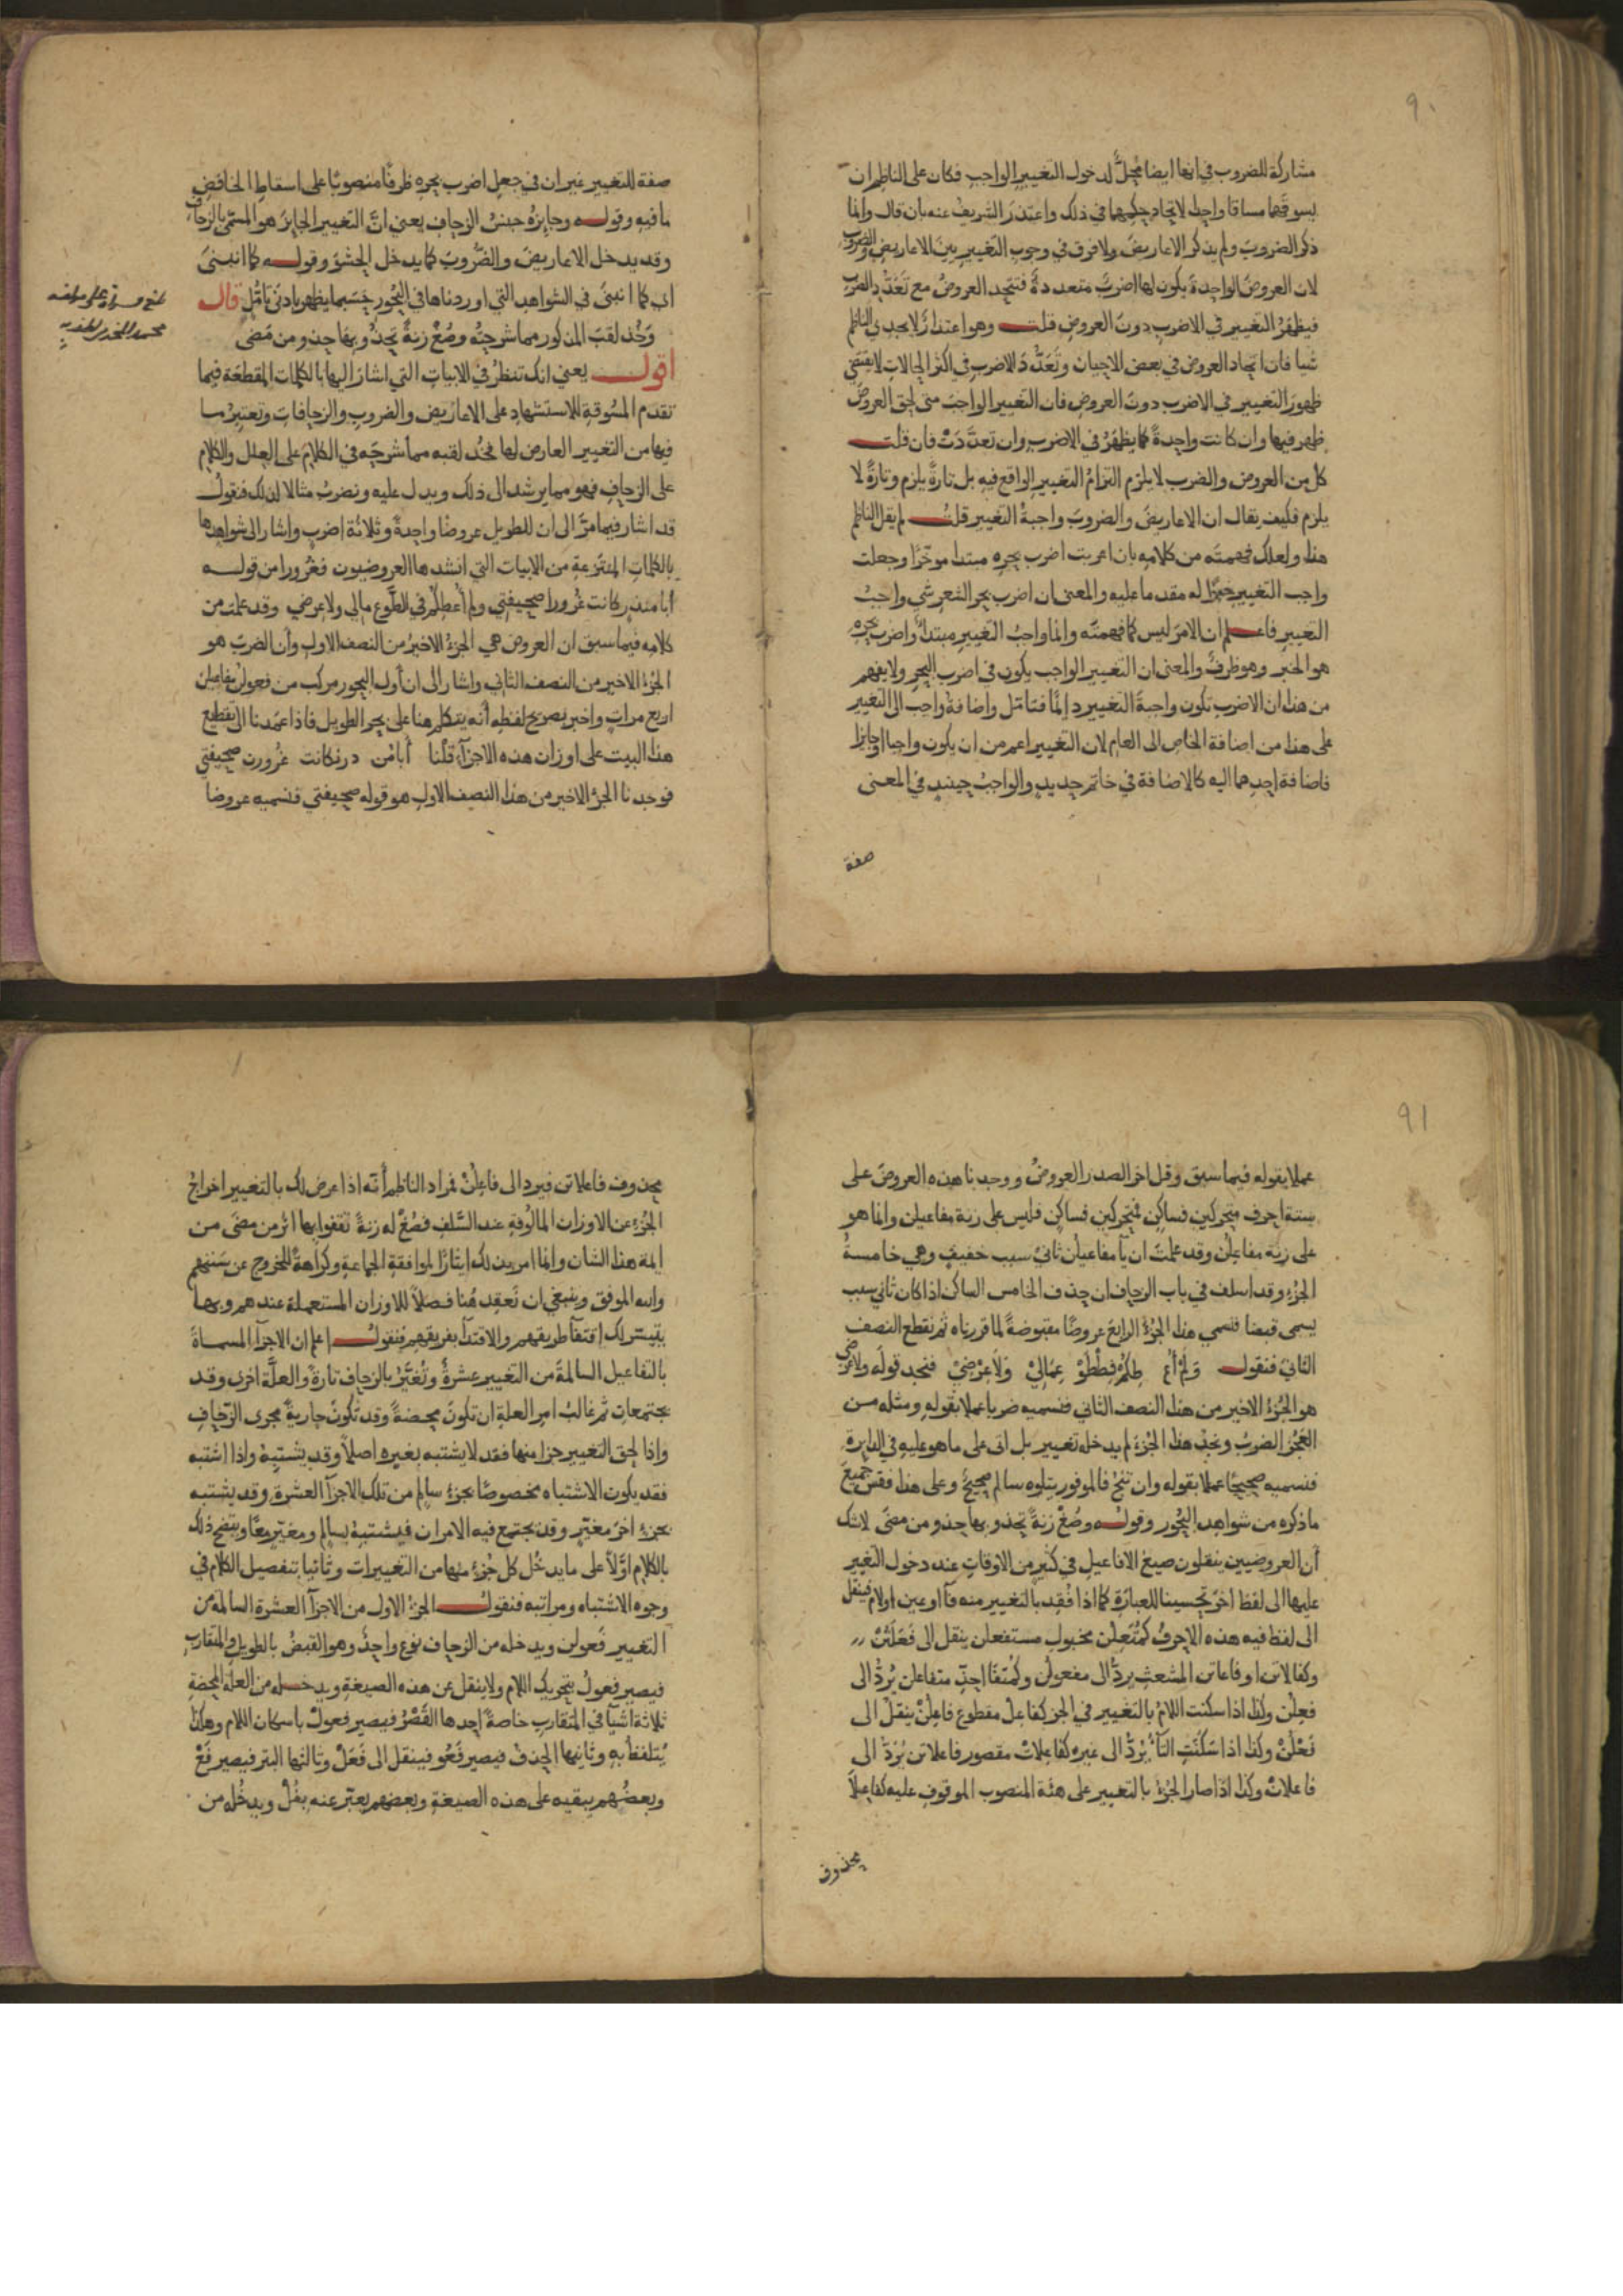 ٩٠
مشاركة للضروب في انها ايضا محل لدخول التغيير الواجب فكان على الناظم ان
يسوقهما مساقا واحدا لاتحاد حكمهما في ذلك واعتذر الشريف عنه بان قال وانما
ذكر الضروب ولم يذكر الاعاريض ولا فرق في وجوب التغيير بين الاعاريض والضروب
لان العروض الواحدة يكون لها اضرب متعددة فتتحد العروض مع تعدد الضرب
فيظهر التغيير في الاضرب دون العروض قلت وهو اعتذار لا يجدي الناظم
شيا فان اتحاد العروض في بعض الاحيان وتعدد الاضرب في اكثر الحالات لا يقتضي
ظهور التغيير في الاضرب دون العروض فان التغيير الواجب متى لحق العروض
ظهر فيها وان كانت واحدة كما يظهر في الاضرب وان تعددت فان قلت
كل من العروض والضرب لا يلزم التزام التغيير الواقع فيه بل تارة يلزم وتارة لا
يلزم فكيف يقال ان الاعاريض والضروب واجبة التغيير قلت لم يقل الناظم
هذا ولعلك فهمته من كلامه بان اعربت اضرب بحره مبتدا موخرا وجعلت
واجب التغيير خبرا له مقدما عليه والمعنى ان اضرب بحر الشعر شي واجب
التغيير فاعلم ان الامر ليس كما فهمته وانما واجب التغيير مبتدا واضرب بحره
هو الخبر وهو ظرف والمعنى ان التغيير الواجب يكون في اضرب البحر ولا يفهم
من هذا ان الاضرب تكون واجبة التغيير دائما فتامل واضافة واجب الى التغيير
على هذا من اضافة الخاص الى العام لان التغيير اعم من ان يكون واجبا او جايزا
فاضافة احدهما اليه كالاضافة في خاتم حديد والواجب حينيد في المعنى
صفة
صفة للتغيير غير ان في جعل اضرب بحره ظرفا منصوبا على اسقاط الخافض
ما فيه وقوله وجايزه جنس الزحاف يعني ان التغيير الجايز هو المسمى بالزحاف
وقد يدخل الاعاريض والضروب كما يدخل الحشو وقوله كما انبنى
اي كما انبنى في الشواهد التي اوردناها في البحور حسبما يظهر بادنى تامل قال
وخذ لقب المذكور مما شرحته وصغ زنة تحذو بها حذو من مضى
اقول يعني انك تنظر في الابيات التي اشار اليها بالكلمات المقطعة فيما
تقدم المسوقة للاستشهاد على الاعاريض والضروب والزحافات وتعتبر ما
فيها من التغيير العارض لها فخذ لقبه مما شرحته في الكلام على العلل والكلام
على الزحاف فهو مما يرشد الى ذلك ويدل عليه ونضرب مثالا لذلك فنقول
قد اشار فيما مر الى ان للطويل عروضا واحدة وثلاثة اضرب واشار الى شواهدها
بالكلمات المنتزعة من الابيات التي انشدها العروضيون فغرورا من قوله
أبا منذر كانت غرورا صحيفتي ولم أعطكم في الطوع مالي ولا عرضي وقد علمت من
كلامه فيما سبق ان العروض هي الجزء الاخير من النصف الاول وأن الضرب هو
الجزء الاخير من النصف الثاني واشار الى ان أول البحور مركب من فعولن مفاعيلن
اربع مرات واخبر بصريح لفظه أنه يتكلم هنا على بحر الطويل فاذا عمدنا الى تقطيع
هذا البيت على اوزان هذه الاجزآ قلنا أبامن درنكانت غرورن صحيفتي
فوجدنا الجزء الاخير من هذا النصف الاول هو قوله صحيفتي فنسميه عروضا
٩١
عملا بقوله فيما سبق وقل اخر الصدر العروض ووجدنا هذه العروض على
ستة احرف متحركين فساكن فمتحركين فساكن فليس على زنة مفاعيلن وانما هو
على زنة مفاعلن وقد علمت ان يا مفاعيلن ثاني سبب خفيف وهي خامسة
الجزء وقد اسلف في باب الزحاف ان حذف الخامس الساكن اذا كان ثاني سبب
يسمى قبضا فنسمي هذا الجزء الرابع عروضا مقبوضة لما قررناه ثم نقطع النصف
الثاني فنقول ولم أع طكم فططو عمالي ولا عرضي فنجد قوله ولا عرضي
هو الجزء الاخير من هذا النصف الثاني فنسميه ضربا عملا بقوله ومثله من
العجز الضرب ونجد هذا الجزء لم يدخله تغيير بل اتى على ما هو عليه في الدايرة
فنسميه صحيحا عملا بقوله وان تنج فالموفور يتلوه سالم صحيح وعلى هذا فقس جميع
ما ذكره من شواهد البحور وقوله وصغ زنة تحذو بها حذو من مضى لا شك
أن العروضيين ينقلون صيغ الافاعيل في كثير من الاوقات عند دخول التغير
عليها الى لفظ اخر تحسينا للعبارة كما اذا فقد بالتغيير منه فآ او عين او لام فينقل
الى لفظ فيه هذه الاحرف كمتعلن مخبول مستفعلن ينقل الى فعلتن
وكفالاتن او فاعاتن المشعث يرد الى مفعولن وكمتفا احذ متفاعلن يرد الى
فعلن وكذا اذا سكنت اللام بالتغيير في الجزء كفاعل مقطوع فاعلن ينقل الى
فعلن وكذا اذا سكنت التآ يرد الى غيره كفاعلات مقصور فاعلاتن يرد الى
فاعلان وكذا اذا صار الجزء بالتغيير على هئة المنصوب الموقوف عليه كفاعلا
محذوف
محذوف فاعلاتن فيرد الى فاعلن فمراد الناظم أنه اذا عرض لك بالتغيير اخراج
الجزء عن الاوزان المالوفة عند السلف فصغ له زنة تقفوا بها اثر من مضى من
ايمة هذا الشان وانما امر بذلك ايثارا لموافقة الجماعة وكراهة للخروج عن سننهم
والله الموفق وينبغي ان نعقد هنا فصلا للاوزان المستعملة عندهم وبها
يتيسر لك اقتفآ طريقهم والاقتدآ بفريقهم فنقول اعلم ان الاجزآ المسماة
بالتفاعيل السالمة من التغيير عشرة وتغير بالزحاف تارة والعلة اخرى وقد
يجتمعان ثم غالب امر العلة ان تكون محضة وقد تكون جارية مجرى الزحاف
واذا لحق التغيير جزا منها فقد لا يشتبه بغيره اصلا وقد يشتبه واذا اشتبه
فقد يكون الاشتباه مخصوصا بجزء سالم من تلك الاجزآ العشرة وقد يشتبه
بجزء اخر مغير وقد يجتمع فيه الامران فيشتبه بسالم ومغير معا ويتضح ذلك
بالكلام اولا على ما يدخل كل جزء منها من التغييرات وثانيا بتفصيل الكلام في
وجوه الاشتباه ومراتبه فنقول الجزء الاول من الاجزآ العشرة السالمة من
التغيير فعولن ويدخله من الزحاف نوع واحد وهو القبض بالطويل والمتقارب
فيصير فعول بتحريك اللام ولا ينقل عن هذه الصيغة ويدخله من العلة المحضة
ثلاثة اشيآ في المتقارب خاصة احدها القصر فيصير فعول باسكان اللام وهكذا
يتلفظ به وثانيها الحذف فيصير فعو فينقل الى فعل وثالثها البتر فيصير فع
وبعضهم يبقيه على هذه الصيغة وبعضهم يعبر عنه بفل ويدخله من